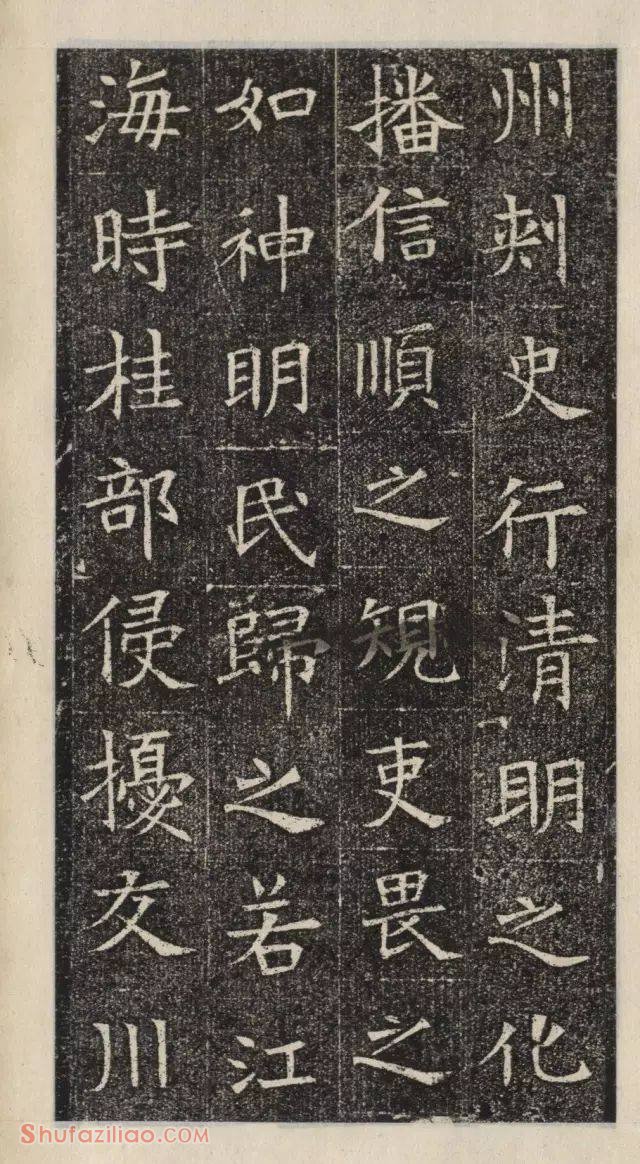 州刺史行清明之化
播信順之規吏畏之
如神明民歸之若江
海時桂部侵擾交川
Shufaziliao.COM